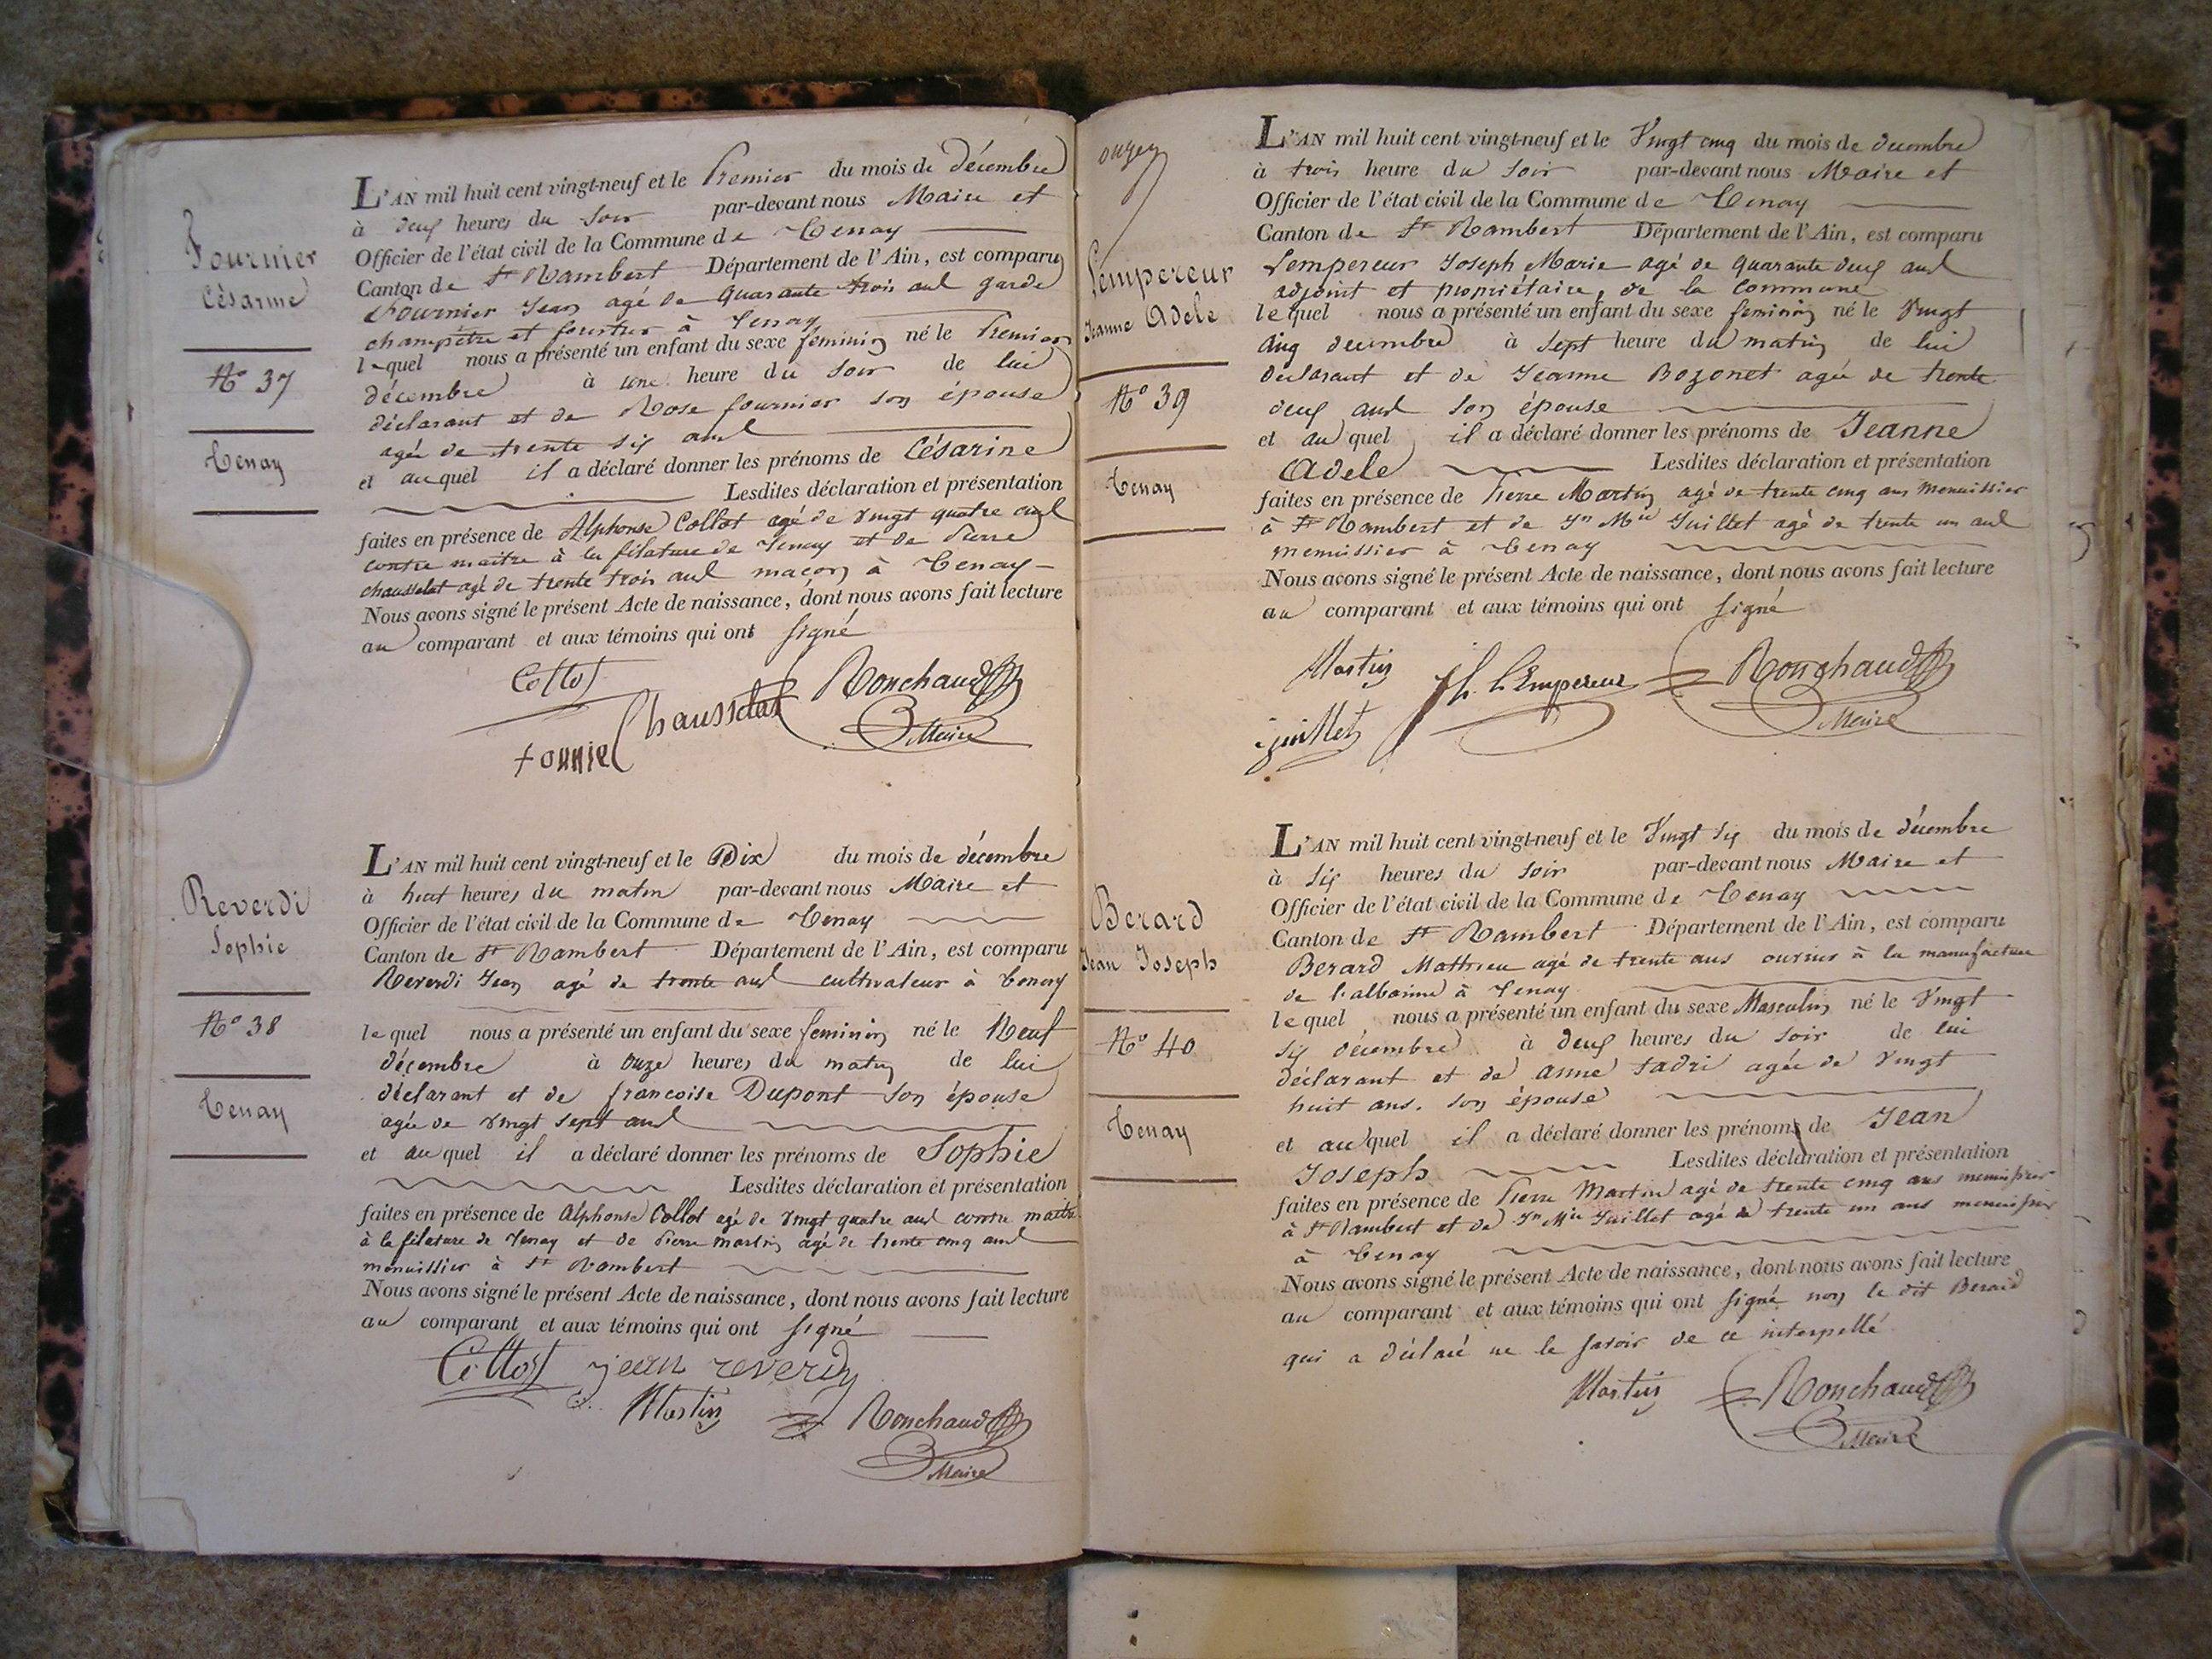 Fournier
Césarine
N° 37
Tenay
L'AN mil huit cent vingt-neuf et le Premier du mois de décembre
à deux heures du soir par-devant nous Maire et
Officier de l'état civil de la Commune de Tenay
Canton de St Rambert Département de l'Ain, est comparu
fournier Jean agé de quarante trois ans garde
champêtre et à Tenay
lequel nous a présenté un enfant du sexe feminin né le Premier
décembre à une heure du soir de lui
déclarant et de Rose fournier son épouse
agée de trente six ans
et auquel il a déclaré donner les prénoms de Césarine
Lesdites déclaration et présentation
faites en présence de Alphonse Collot agé de vingt quatre ans
contre maitre à la filature de Tenay et de Pierre
chausselat agé de trente trois ans maçon à Tenay
Nous avons signé le présent Acte de naissance, dont nous avons fait lecture
au comparant et aux témoins qui ont signé
Collot
Chausselat
Ronchaud
Maire
Reverdi
Sophie
N° 38
Tenay
L'AN mil huit cent vingt-neuf et le Dix du mois de décembre
à huit heures du matin par-devant nous Maire et
Officier de l'état civil de la Commune de Tenay
Canton de St Rambert Département de l'Ain, est comparu
Reverdi Jean agé de trente ans cultivateur à Tenay
lequel nous a présenté un enfant du sexe feminin né le Neuf
décembre à onze heures du matin de lui
déclarant et de francoise Dupont son épouse
agée de vingt sept ans
et auquel il a déclaré donner les prénoms de Sophie
Lesdites déclaration et présentation
faites en présence de Alphonse Collot agé de vingt quatre ans contre maitre
à la filature de Tenay et de Pierre Martin agé de trente cinq ans
menuissier à St Rambert
Nous avons signé le présent Acte de naissance, dont nous avons fait lecture
au comparant et aux témoins qui ont signé
Collot jean reverdy
Martin Ronchaud
Maire
Lempereur
Jeanne Adele
N° 39
Tenay
L'AN mil huit cent vingt-neuf et le Vingt cinq du mois de decembre
à trois heure du soir par-devant nous Maire et
Officier de l'état civil de la Commune de Tenay
Canton de St Rambert Département de l'Ain, est comparu
Lempereur Joseph Marie agé de quarante deux ans
adjoint et propriétaire, de la commune
lequel nous a présenté un enfant du sexe feminin né le Vingt
cinq decembre à sept heure du matin de lui
declarant et de Jeanne Bozonet agée de trente
deux ans son épouse
et auquel il a déclaré donner les prénoms de Jeanne
Adele Lesdites déclaration et présentation
faites en présence de Pierre Martin agé de trente cinq ans menuissier
à St Rambert et de Jn Mie Juillet agé de trente un ans
menuissier à Tenay
Nous avons signé le présent Acte de naissance, dont nous avons fait lecture
au comparant et aux témoins qui ont signé
Martin L'Empereur Ronchaud
juillet Maire
Berard
Jean Joseph
N° 40
Tenay
L'AN mil huit cent vingt-neuf et le Vingt six du mois de décembre
à six heures du soir par-devant nous Maire et
Officier de l'état civil de la Commune de Tenay
Canton de St Rambert Département de l'Ain, est comparu
Berard Mathieu agé de trente ans ouvrier à la manufacture
de à Tenay
lequel nous a présenté un enfant du sexe Masculin né le Vingt
six décembre à deux heures du soir de lui
déclarant et de anne tadri agée de vingt
huit ans. son épouse
et auquel il a déclaré donner les prénoms de Jean
Joseph Lesdites déclaration et présentation
faites en présence de Pierre Martin agé de trente cinq ans menuissier
à St Rambert et de Jn Mie Juillet agé de trente un ans menuissier
à Tenay
Nous avons signé le présent Acte de naissance, dont nous avons fait lecture
au comparant et aux témoins qui ont signé non le dit Berard
qui a déclaré ne le savoir de ce interpellé
Martin Ronchaud
Maire